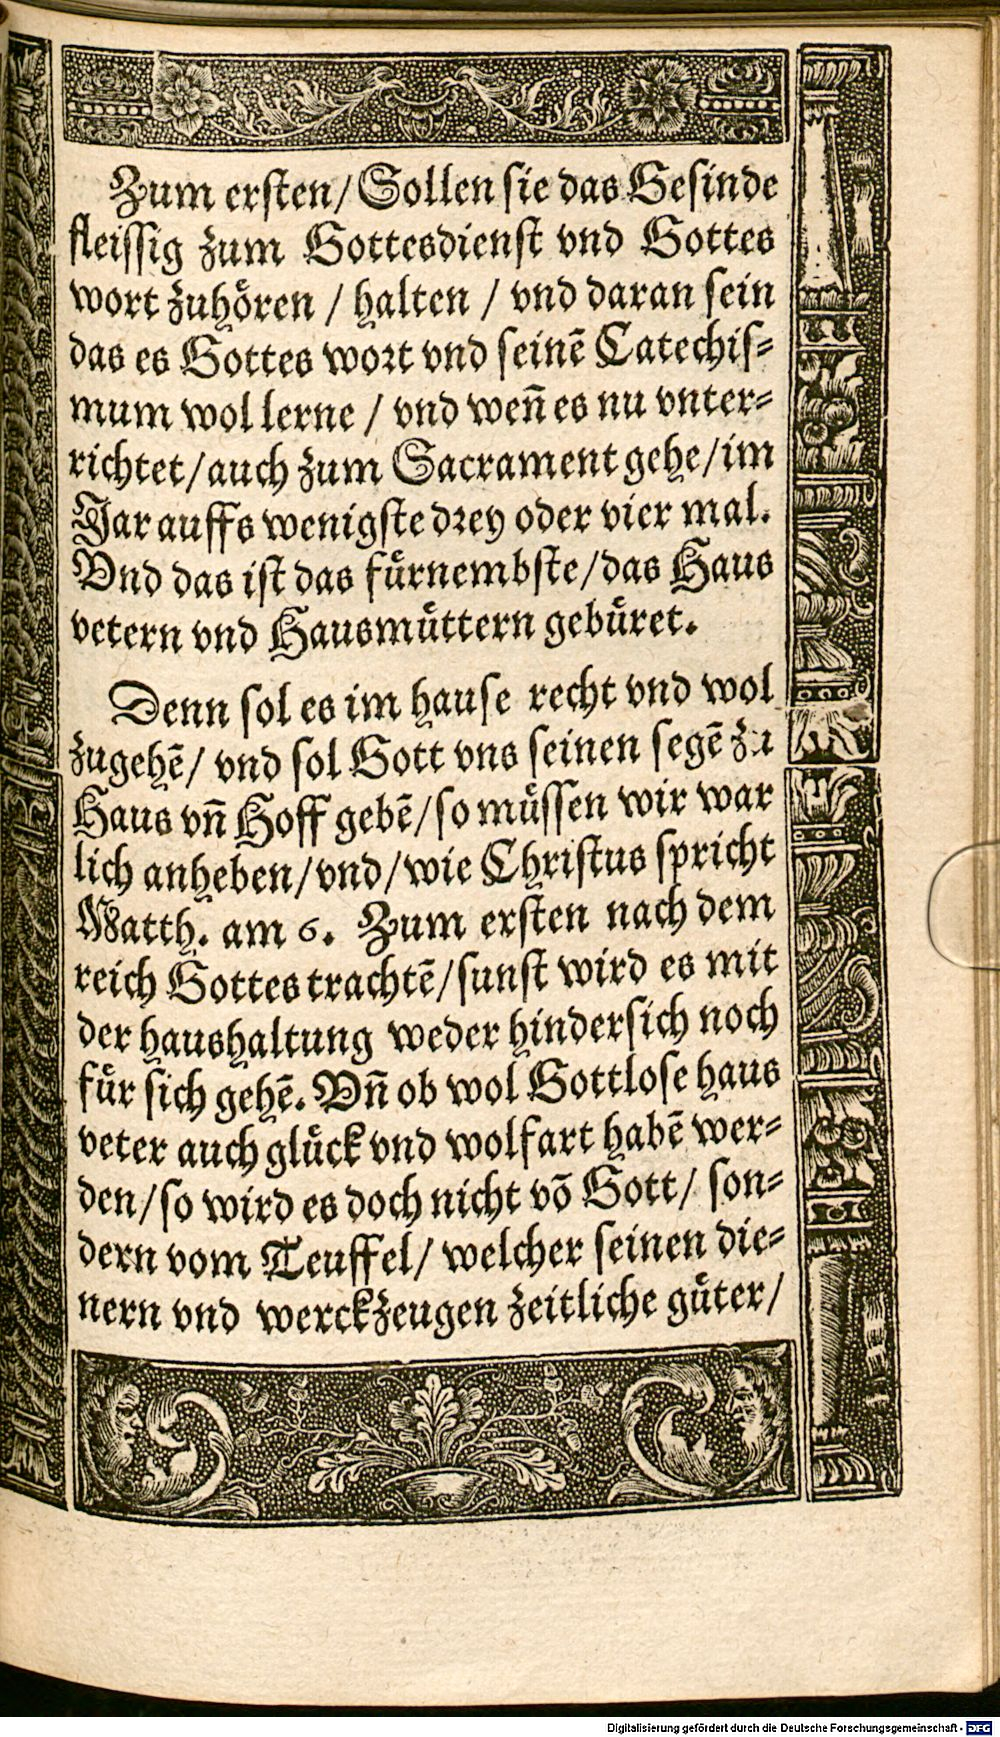 Zum ersten/ Sollen sie das Gesinde
fleissig zum Gottesdienst vnd Gottes
wort zuhoͤren / halten / vnd daran sein
das es Gottes wort vnd seinē Catechis⸗
mum wol lerne / vnd weñ es nu vnter⸗
richtet/auch zum Sacrament gehe/im
Jar auffs wenigste drey oder vier mal.
Vnd das ist das fuͤrnembste/das Haus
vetern vnd Hausmuͤttern gebuͤret.
Denn sol es im hause recht vnd wol
zugehē/ vnd sol Gott vns seinen segē zu
Haus vñ Hoff gebē/so muͤssen wir war
lich anheben/vnd/wie Christus spricht
Matth. am 6. Zum ersten nach dem
reich Gottes trachtē/sunst wird es mit
der haushaltung weder hindersich noch
fuͤr sich gehē. Vñ ob wol Gottlose haus
veter auch gluͤck vnd wolfart habē wer⸗
den/so wird es doch nicht vō Gott/ son⸗
dern vom Teuffel/ welcher seinen die⸗
nern vnd werckzeugen zeitliche guͤter/
Digitalisierung gefördert durch die Deutsche Forschungsgemeinschaft - DFG